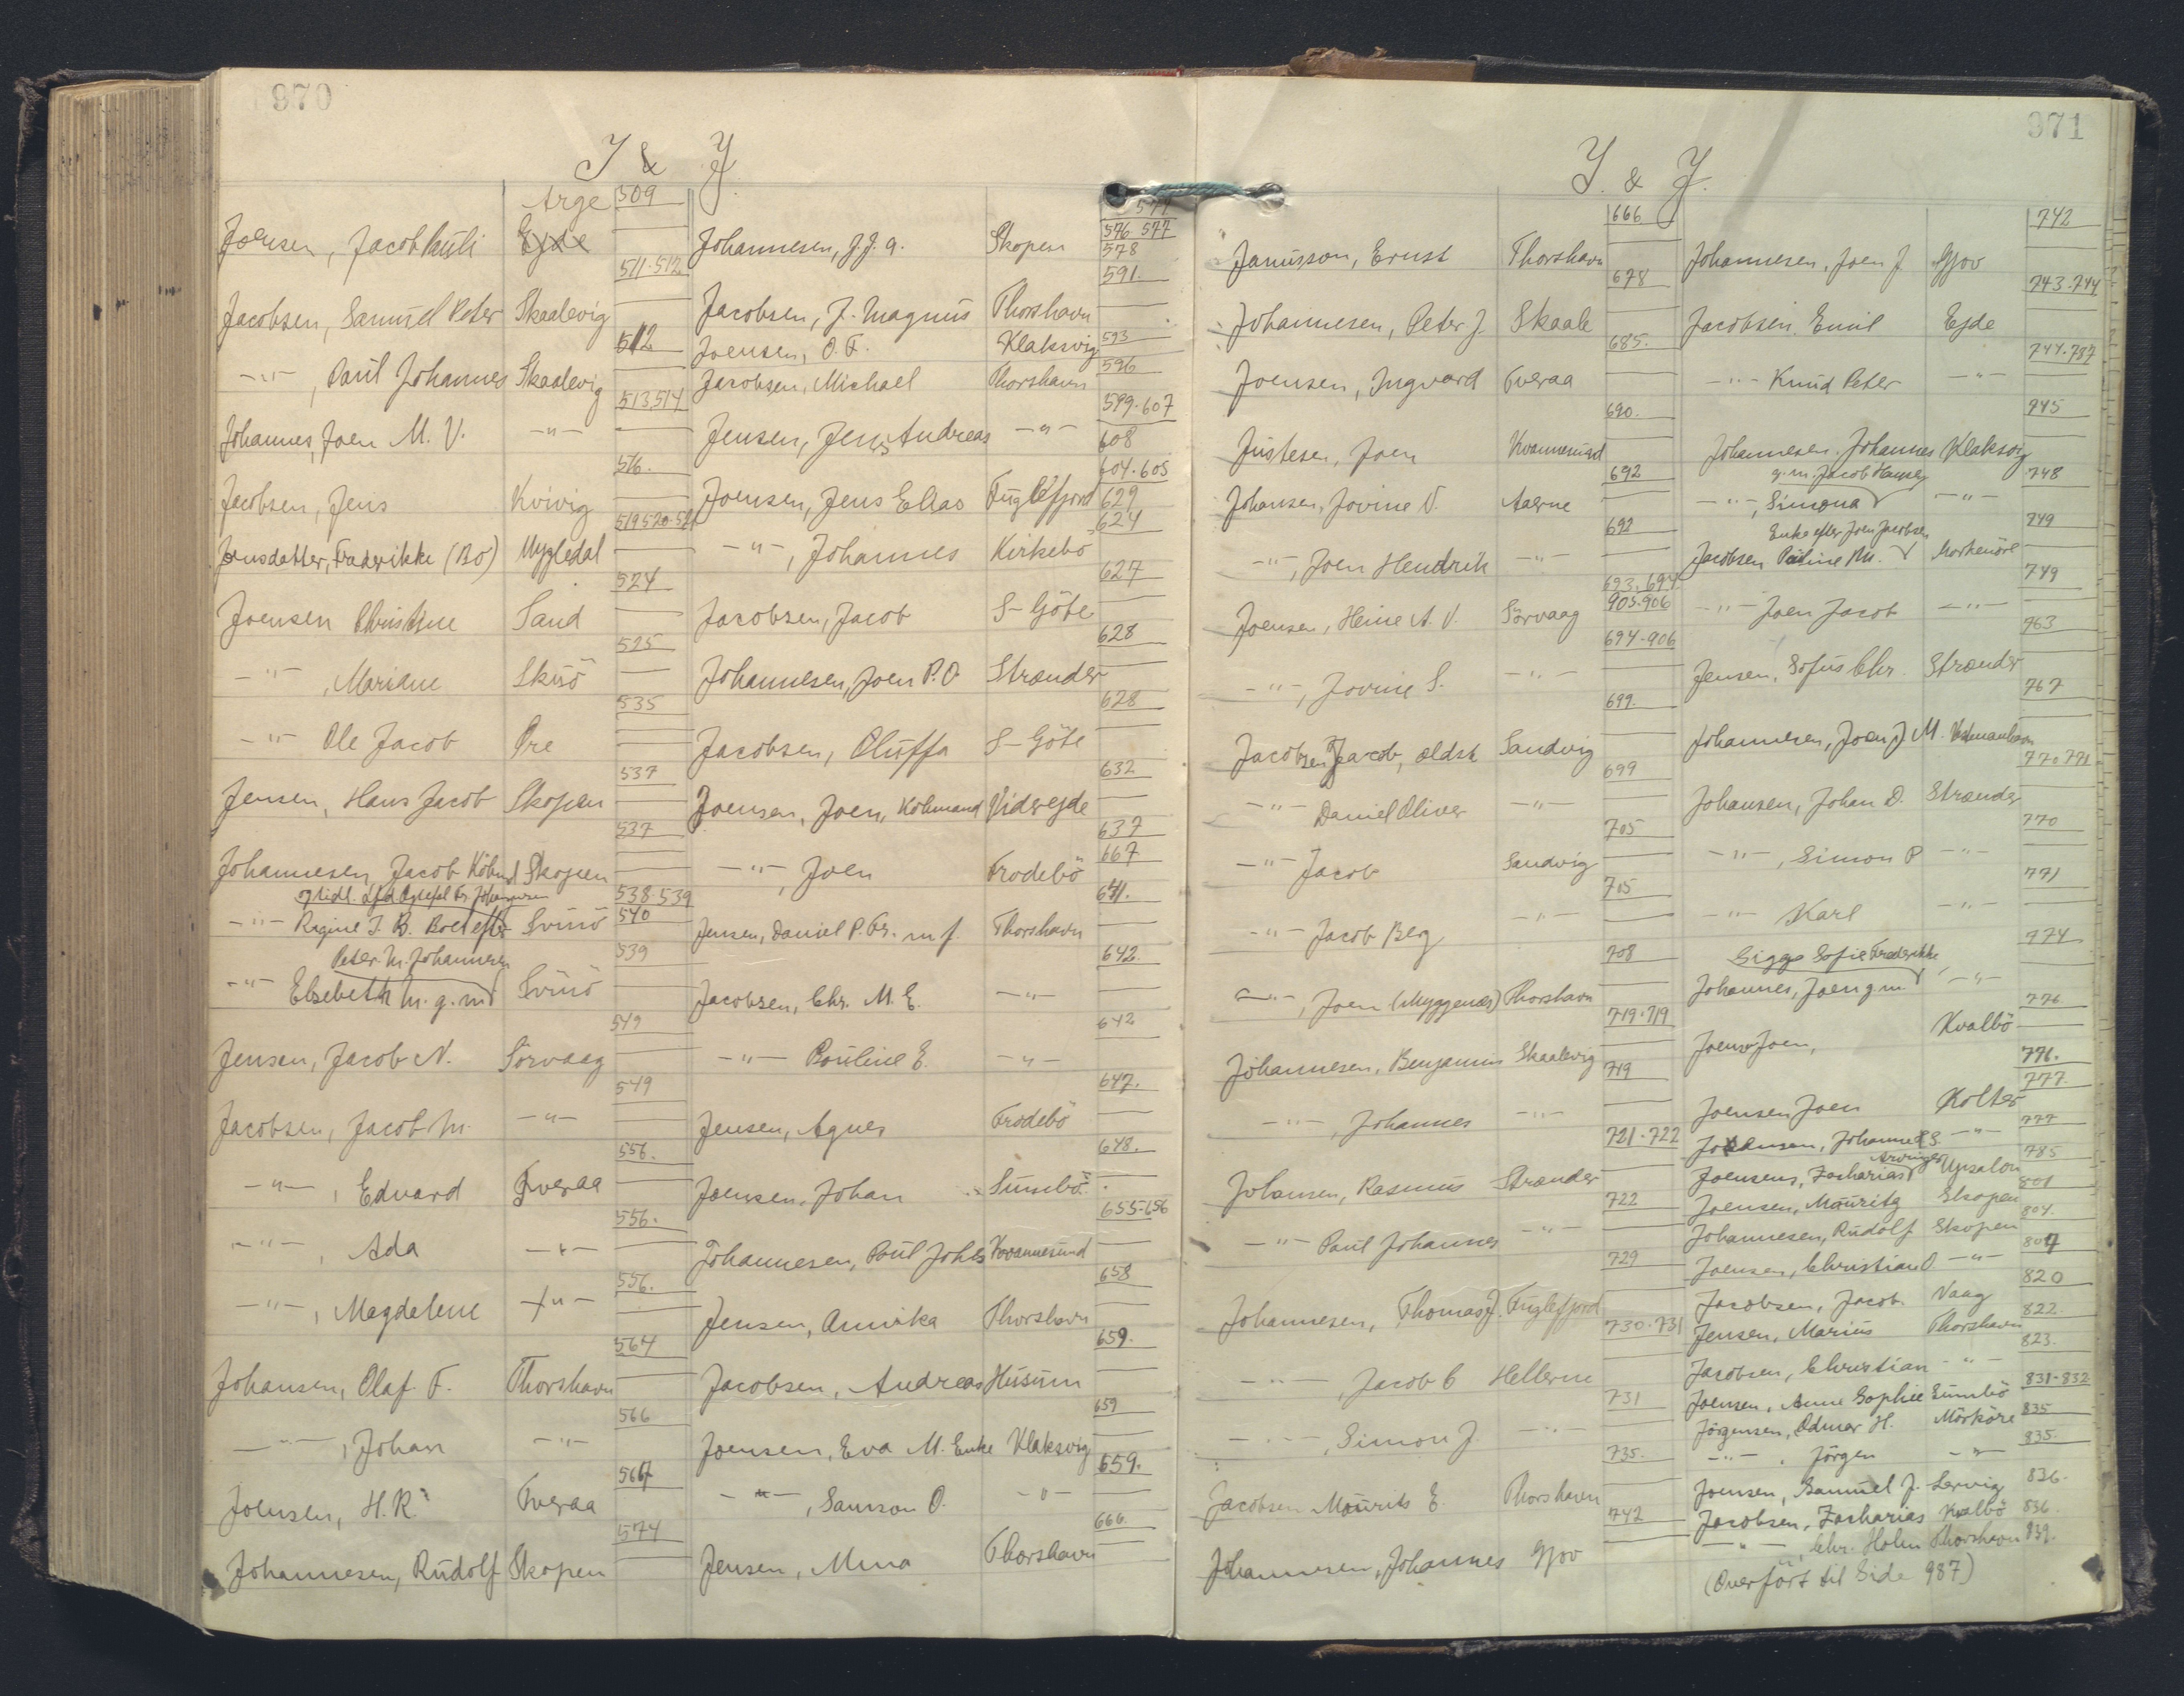 970
I & J
Arge 509
Joensen, Jacob Pauli Ejde
511-512
Jacobsen, Samuel Peter Skaalevig
512
-"-, Paul Johannes Skaalevig
513 514
Johannes, Joen M. V. -"-
516.
Jacobsen, Jens Kvivig
519 520-521
Jensdatter, Frederikke (Bo) Mygledal
524
Joensen Christine Sand
525
-"-, Mariane Skuö
535
-"- Ole Jacob Öre
537
Jensen, Hans Jacob Skopen
537
Johannesen, Jacob Köbmd Skopen
538-539
-"- Regine J. B. Boet efter Svinö 540
539
Peter M. Johannesen
-"- Elsebeth M. g. m. Svinö
549
Jensen, Jacob N. Sörvaag
549
Jacobsen, Jacob M. -"-
556.
-"-, Edvard Tveraa
556.
-"-, Ada -"-
556.
-"-, Magdalene -"-
564
Johansen, Olaf F. Thorshavn
566
-"-, Johan -"-
567
Joensen, H. R. Tveraa
574
Johannesen, Rudolf Skopen
577
576 577
Johannesen, J. J. A. Skopen 578
591.
Jacobsen, J. Magnus Thorshavn
Joensen, O. F. Klaksvig 593
596
Jacobsen, Michael Thorshavn
599-607
Jensen, Jens Andreas -"- 608
604-605
Joensen, Jens Elias Fuglefjord 629
624
-"-, Johannes Kirkebö
627
Jacobsen, Jacob S-Göte
628
Johannesen, Joen P. O. Strænder
628
Jacobsen, Oluffa S-Göte
632
Joensen, Joen, Köbmand Viderejde
637
667
-"-, Joen Frodebö
641.
Jensen, Daniel P. Fr. m f. Thorshavn
642.
Jacobsen, Chr. M. E. -"-
642
-"- Pouline E. -"-
647.
Jensen, Agnes Frodebö
648.
Joensen, Johan Sumbö
655-656
Johannesen, Poul Johs Kvannesund
658
Jensen, Annika Thorshavn
659.
Jacobsen, Andreas Husum
659
Joensen, Eva M. Enke Klaksvig
659.
-"-, Samson O. -"-
666.
Jensen, Mina Thorshavn
971
I. & J.
666
Janusson, Ernst Thorshavn
678
Johannesen, Peter J. Skaale
685.
Joensen, Ingvard Tveraa
690.
Justesen, Joen Kvannesund
692
Johansen, Jovine V. Aaerne
692
-"-, Joen Hendrik -"-
693, 694
905-906
Joensen, Heine A. V. Sörvaag
694-906
-"-, Jovine S. -"-
699.
Jacobsen Jacob, ældst Sandvig
699
-"- Daniel Oliver -"-
705
-"- Jacob Sandvig
705
-"- Jacob Berg -"-
708
-"-, Joen (Myggenæs) Thorshavn
719-719
Johannesen, Benjamin Skaalevig
719
-"-, Johannes -"-
721-722
Johansen, Rasmus Strænder
722
-"- Paul Johannes -"-
729
Johannesen, Thomas J. Fuglefjord
730-731
-"-, Jacob C Hellerne
731
-"-, Simon J. -"-
735.
Jacobsen Maurits E. Thorshavn
742
Johannesen, Johannes Gjov
742
Johannesen, Joen J Gjov
743-744
Jacobsen Emil Ejde
744-787
-"- Knud Peter -"-
745
Johannesen, Johannes Klaksvig
g. m. Jacob Hansen 748
-"-, Simona -"-
Enke efter Joen Jacobsen 749
Jacobsen Pauline M. Morkenöre
749
-"- Joen Jacob -"-
763
Jensen, Sofus Chr. Strænder
767
Johannesen, Joen J M. Vestmanhavn
770 771
Johansen, Johan D. Strænder
770
-"-, Simon P -"-
771
-"- Karl -"-
774
Sigga Sofie Frederikke
Johannes, Joen g m -"-
776.
Joens Joen, Kvalbö
776.
777.
Joensen Joen Kolter
777
Johansen, Johannes S. -"-
Arvinger 785
Joensens, Zacharias Upsalon
801
Joensen, Mauritz Skopen
804.
Johannesen, Rudolf Skopen
807
Joensen, Christian O. -"-
820
Jacobsen, Jacob. Vaag
822.
Jensen, Marius Thorshavn
823.
Jacobsen, Christian -"-
831-832
Joensen, Anne Sophie Sumbö
835
Jörgensen, Odmar H. Mörköre
835.
-"-, Jörgen -"-
836.
Joensen, Samuel J. Lervig
Jacobsen, Zacharias Kvalbö 836
-"-, Chr. Holm Thorshavn 839.
(Overfört til Side 987)